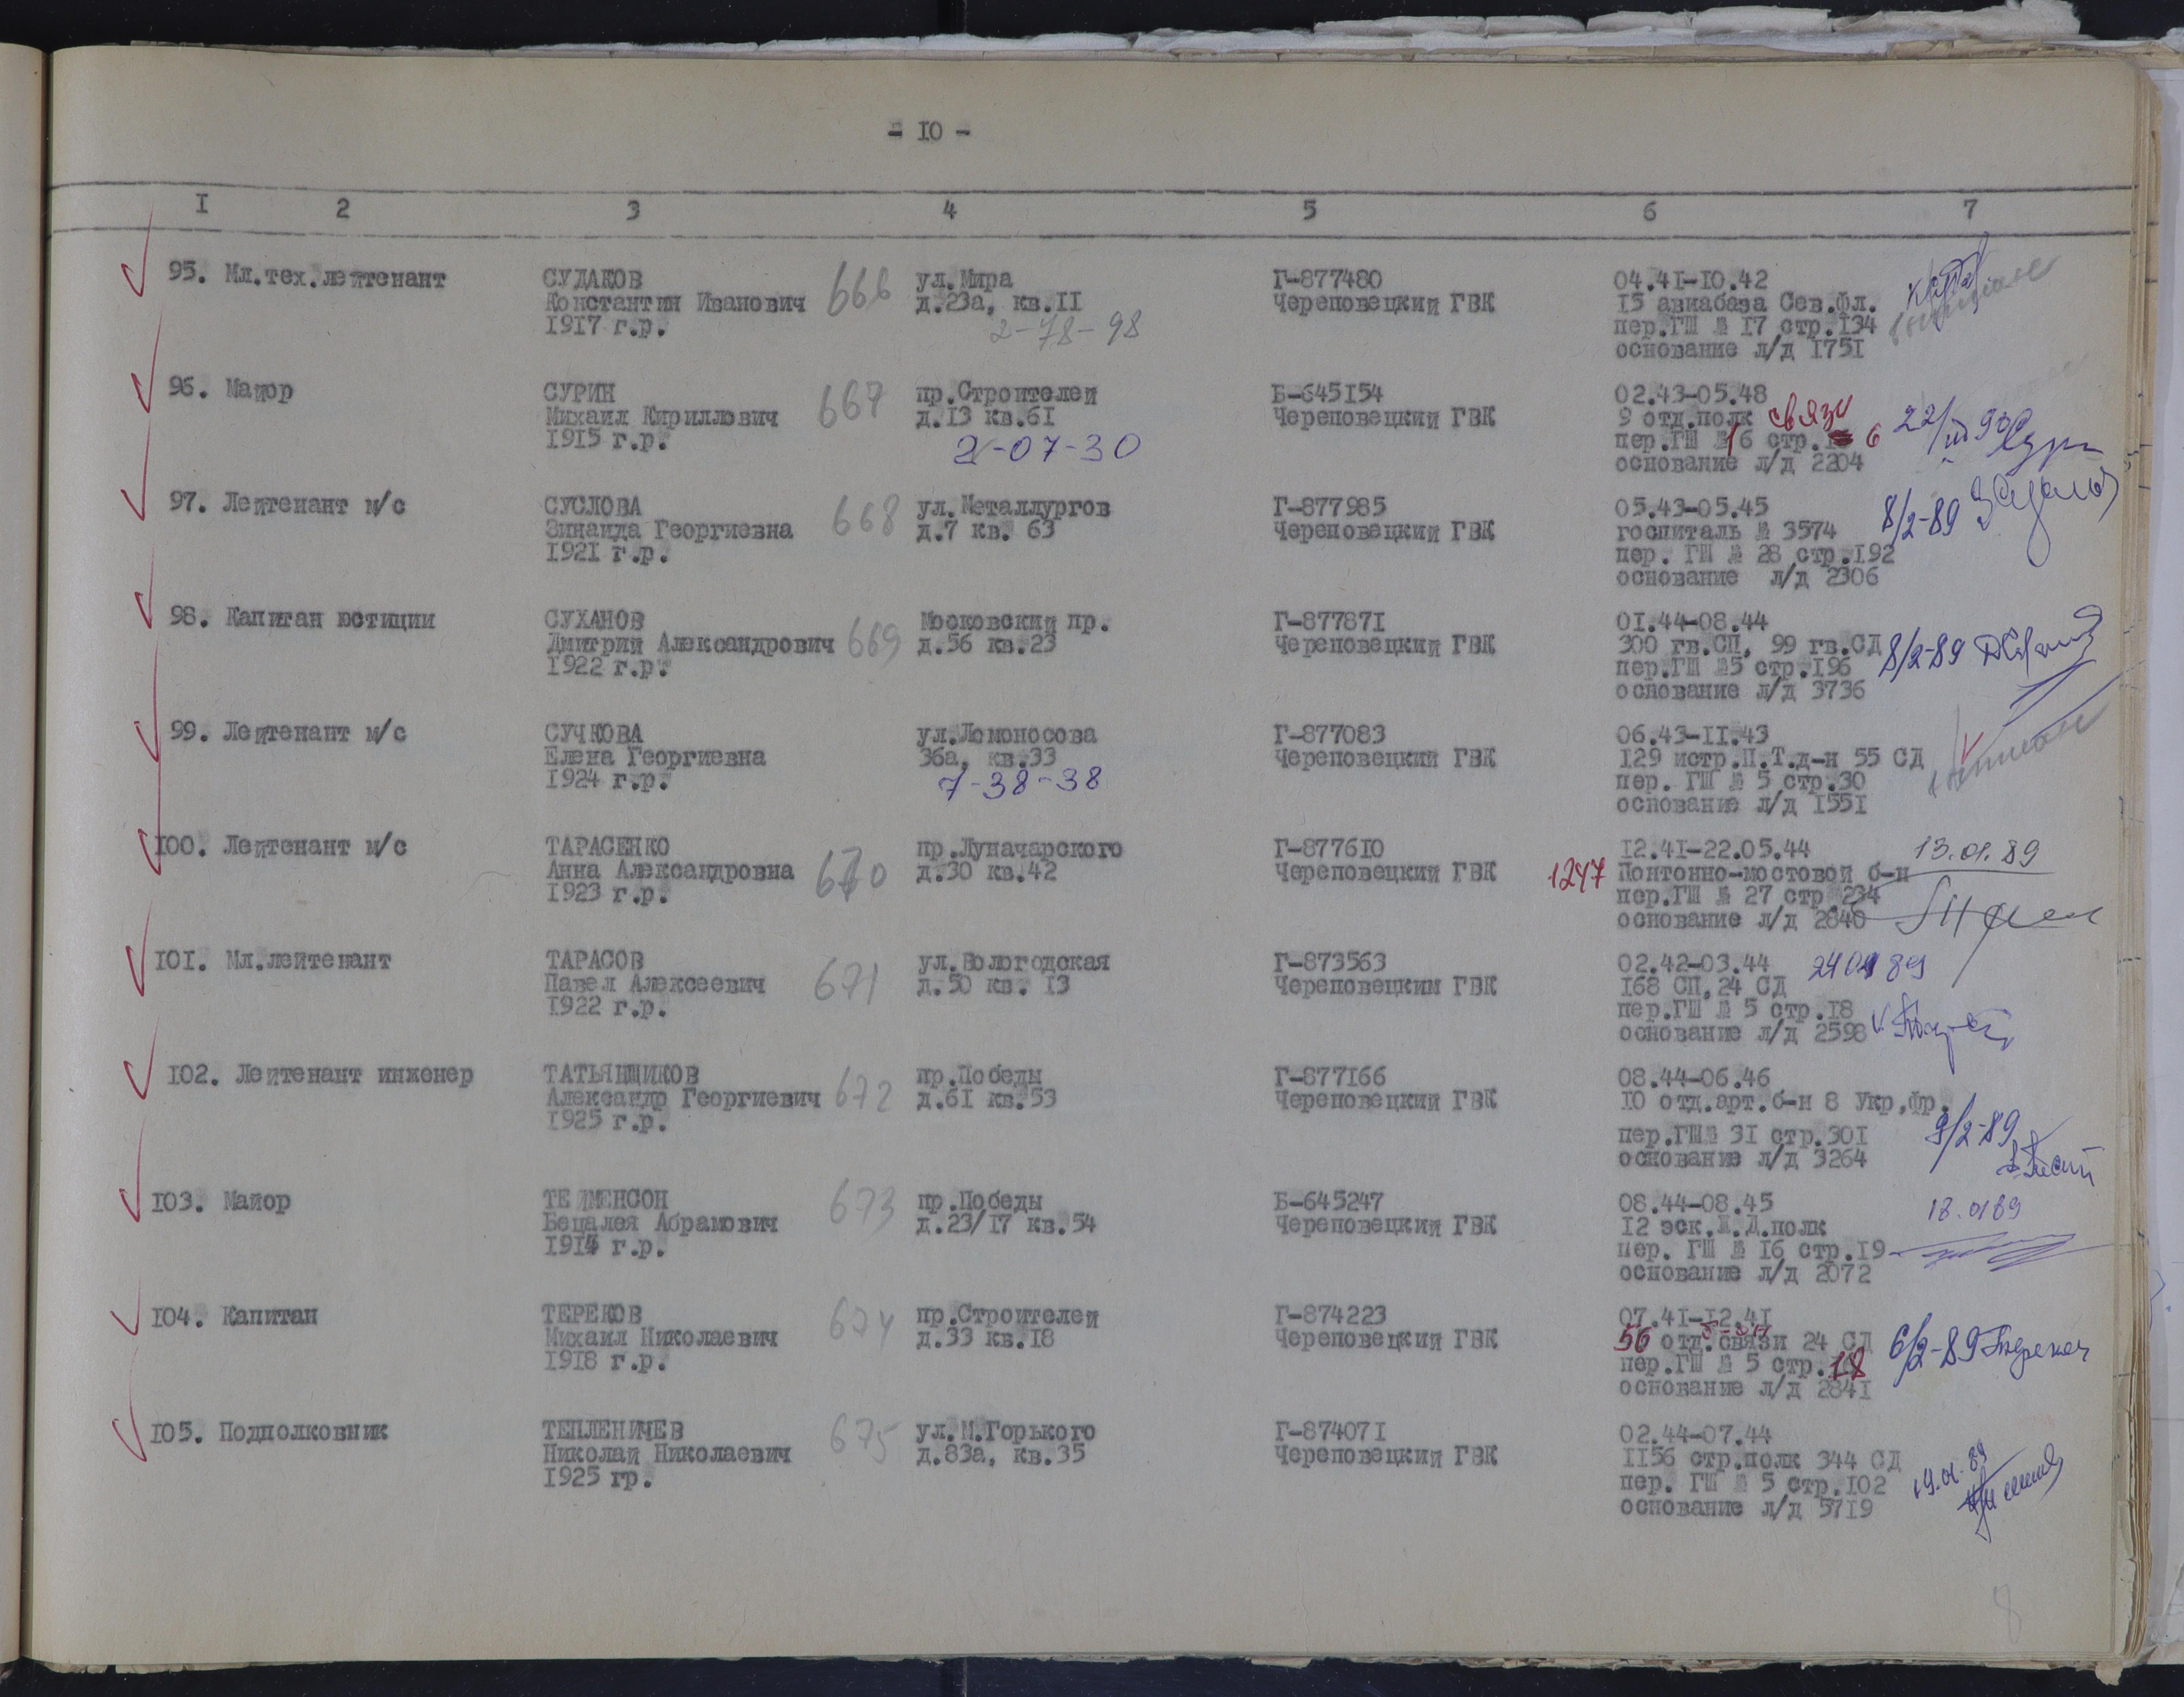 - 10 -
I 2 3 4 5 6 7
95. Мл.тех.лейтенант СУДАКОВ 666 ул.Мира Г-877480 04.41-10.42
Константин Иванович д.23а, кв.11 Череповецкий ГВК 15 авиабаза Сев.Фл.
1917 г.р. 2-78-98 пер.ГШ № 17 стр.134
основание л/д 1751
96. Майор СУРИН 667 пр.Строителей Б-645154 02.43-05.48
Михаил Кириллович д.13 кв.61 Череповецкий ГВК 9 отд.полк связи
1915 г.р. 2-07-30 пер.ГШ № 6 стр. 6
основание л/д 2204
97. Лейтенант м/с СУСЛОВА 668 ул.Металлургов Г-877985 05.43-05.45
Зинаида Георгиевна д.7 кв. 63 Череповецкий ГВК госпиталь № 3574 8/2-89
1921 г.р. пер. ГШ № 28 стр.192
основание л/д 2306
98. Капитан юстиции СУХАНОВ 669 Московский пр. Г-877871 01.44-08.44
Дмитрий Александрович д.56 кв.23 Череповецкий ГВК 300 гв.СП, 99 гв.СД 8/2-89
1922 г.р. пер.ГШ №5 стр.196
основание л/д 3736
99. Лейтенант м/с СУЧКОВА ул.Ломоносова Г-877083 06.43-11.43
Елена Георгиевна 36а, кв.33 Череповецкий ГВК 129 истр.П.Т.д-н 55 СД
1924 г.р. 7-38-38 пер. ГШ № 5 стр.30
основание л/д 1551
100. Лейтенант м/с ТАРАСЕНКО 670 пр.Луначарского Г-877610 12.41-22.05.44 13.01.89
Анна Александровна д.30 кв.42 Череповецкий ГВК 1247 Понтонно-мостовой б-н
1923 г.р. пер.ГШ № 27 стр.234
основание л/д 2840
101. Мл.лейтенант ТАРАСОВ 671 ул.Вологодская Г-873563 02.42-03.44 24 01 89
Павел Алексеевич д.50 кв. 13 Череповецкий ГВК 168 СП,24 СД
1922 г.р. пер.ГШ № 5 стр.18
основание л/д 2598
102. Лейтенант инженер ТАТЬЯНЩИКОВ 672 пр.Победы Г-877166 08.44-06.46
Александр Георгиевич д.61 кв.53 Череповецкий ГВК 10 отд.арт.б-н 8 Укр,Фр.
1925 г.р. пер.ГШ№ 31 стр.301 9/2-89
основание л/д 3264
103. Майор ТЕЙМЕНСОН 673 пр.Победы Б-645247 08.44-08.45 18.01 89
Бецалея Абрамович д.23/17 кв.54 Череповецкий ГВК 12 эск.Ж.Д.полк
1914 г.р. пер. ГШ № 16 стр.19
основание л/д 2072
104. Капитан ТЕРЕКОВ 674 пр.Строителей Г-874223 07.41-12.41
Михаил Николаевич д.33 кв.18 Череповецкий ГВК 56 отд. связи 24 СД 6/2-89
1918 г.р. пер.ГШ № 5 стр.18
основание л/д 2841
105. Подполковник ТЕПЛЕНИЧЕВ 675 ул.М.Горького Г-874071 02.44-07.44
Николай Николаевич д.83а, кв.35 Череповецкий ГВК 1156 стр.полк 344 СД
1925 гр. пер. ГШ № 5 стр.102 19.01.89
основание л/д 5719
8